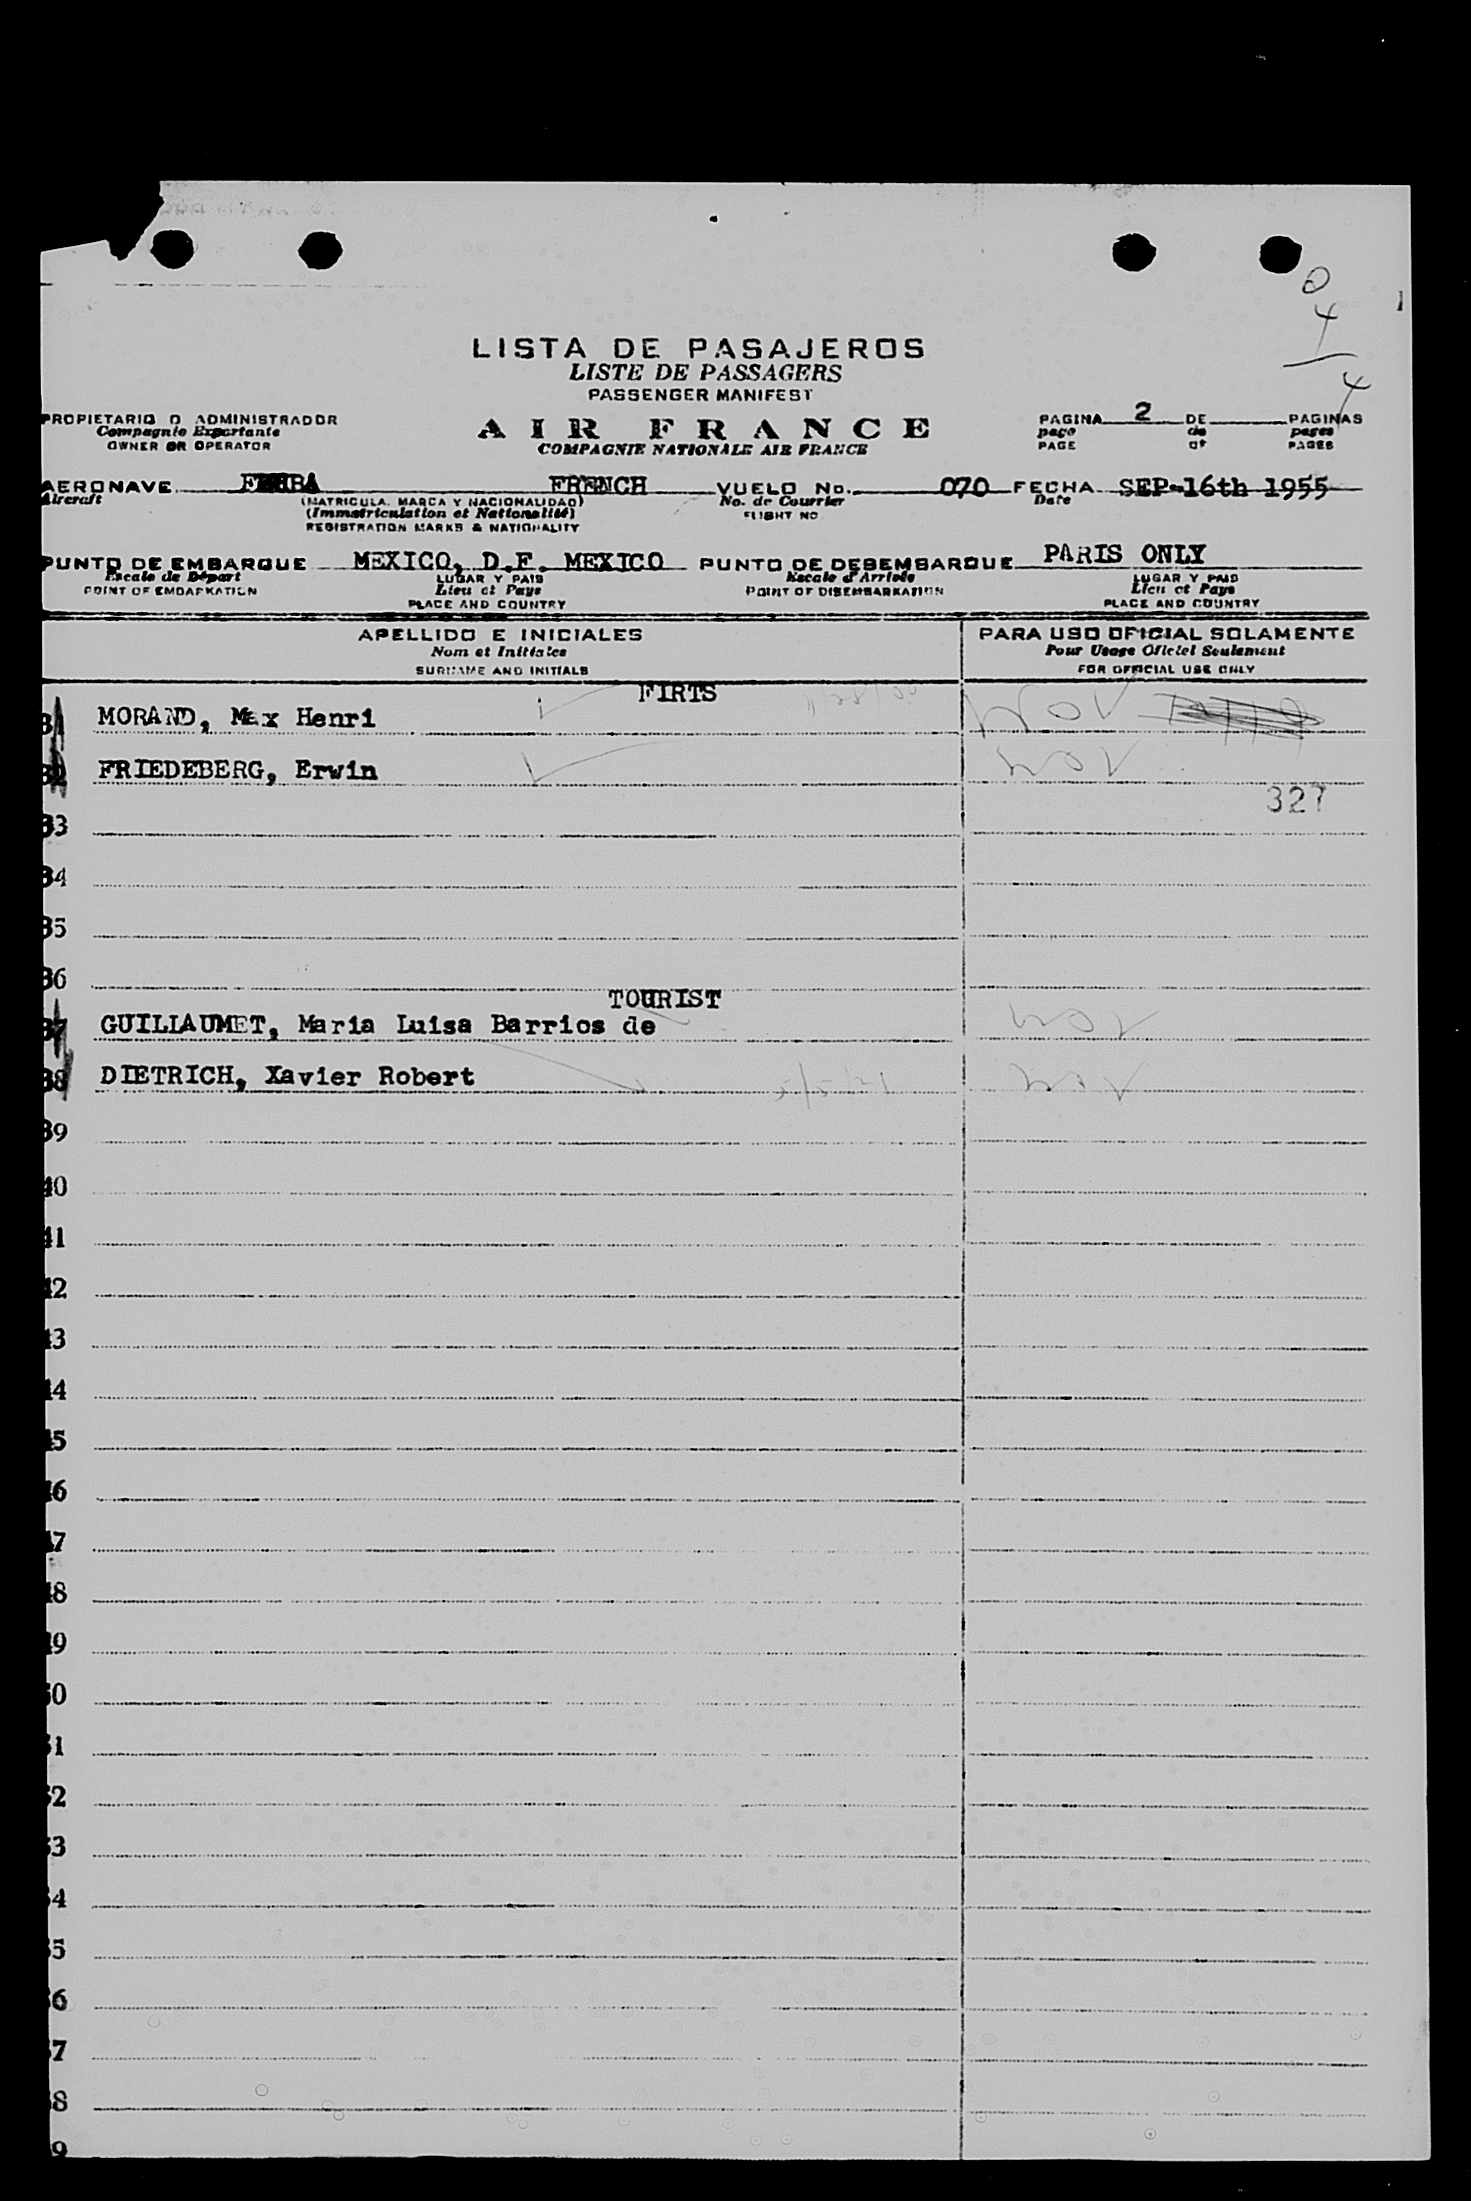 0
4
4
LISTA DE PASAJEROS
LISTE DE PASSAGERS
PASSENGER MANIFEST
PROPIETARIO O ADMINISTRADOR
Compagnie Exportante
OWNER OR OPERATOR
AIR FRANCE
COMPAGNIE NATIONALE AIR FRANCE
PAGINA 2 DE PAGINAS
page de pages
PAGE OF PAGES
AERONAVE FRENCH VUELO No. 070 FECHA SEP-16th 1955
Aircraft (MATRICULA, MARCA Y NACIONALIDAD) No. de Courrier Date
(Immatriculation et Nationalité) FLIGHT NO
REGISTRATION MARKS & NATIONALITY
PUNTO DE EMBARQUE MEXICO, D.F. MEXICO PUNTO DE DESEMBARQUE PARIS ONLY
Escale de Départ LUGAR Y PAIS Escale d'Arrivée LUGAR Y PAIS
POINT OF EMBARKATION Lieu et Pays POINT OF DISEMBARKATION Lieu et Pays
PLACE AND COUNTRY PLACE AND COUNTRY
APELLIDO E INICIALES PARA USO OFICIAL SOLAMENTE
Nom et Initiales Pour Usage Oficiel Seulement
SURNAME AND INITIALS FOR OFFICIAL USE ONLY
FIRTS
31 MORAND, Max Henri
32 FRIEDEBERG, Erwin
327
33
34
35
36
TOURIST
37 GUILLAUMET, Maria Luisa Barrios de
38 DIETRICH, Xavier Robert
39
40
41
42
43
44
45
46
47
48
49
50
51
52
53
54
55
56
57
58
59